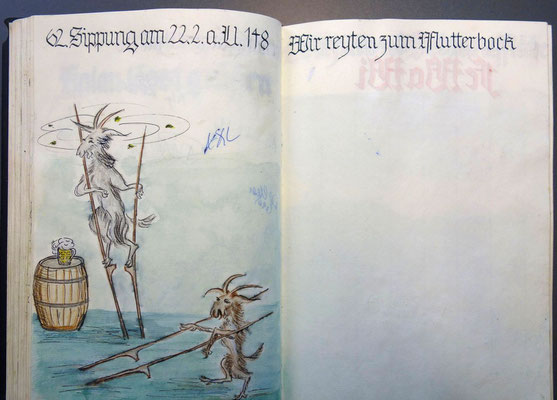 62. Sippung am 22.2. a.U. 148
Wir reyten zum Mutterbock